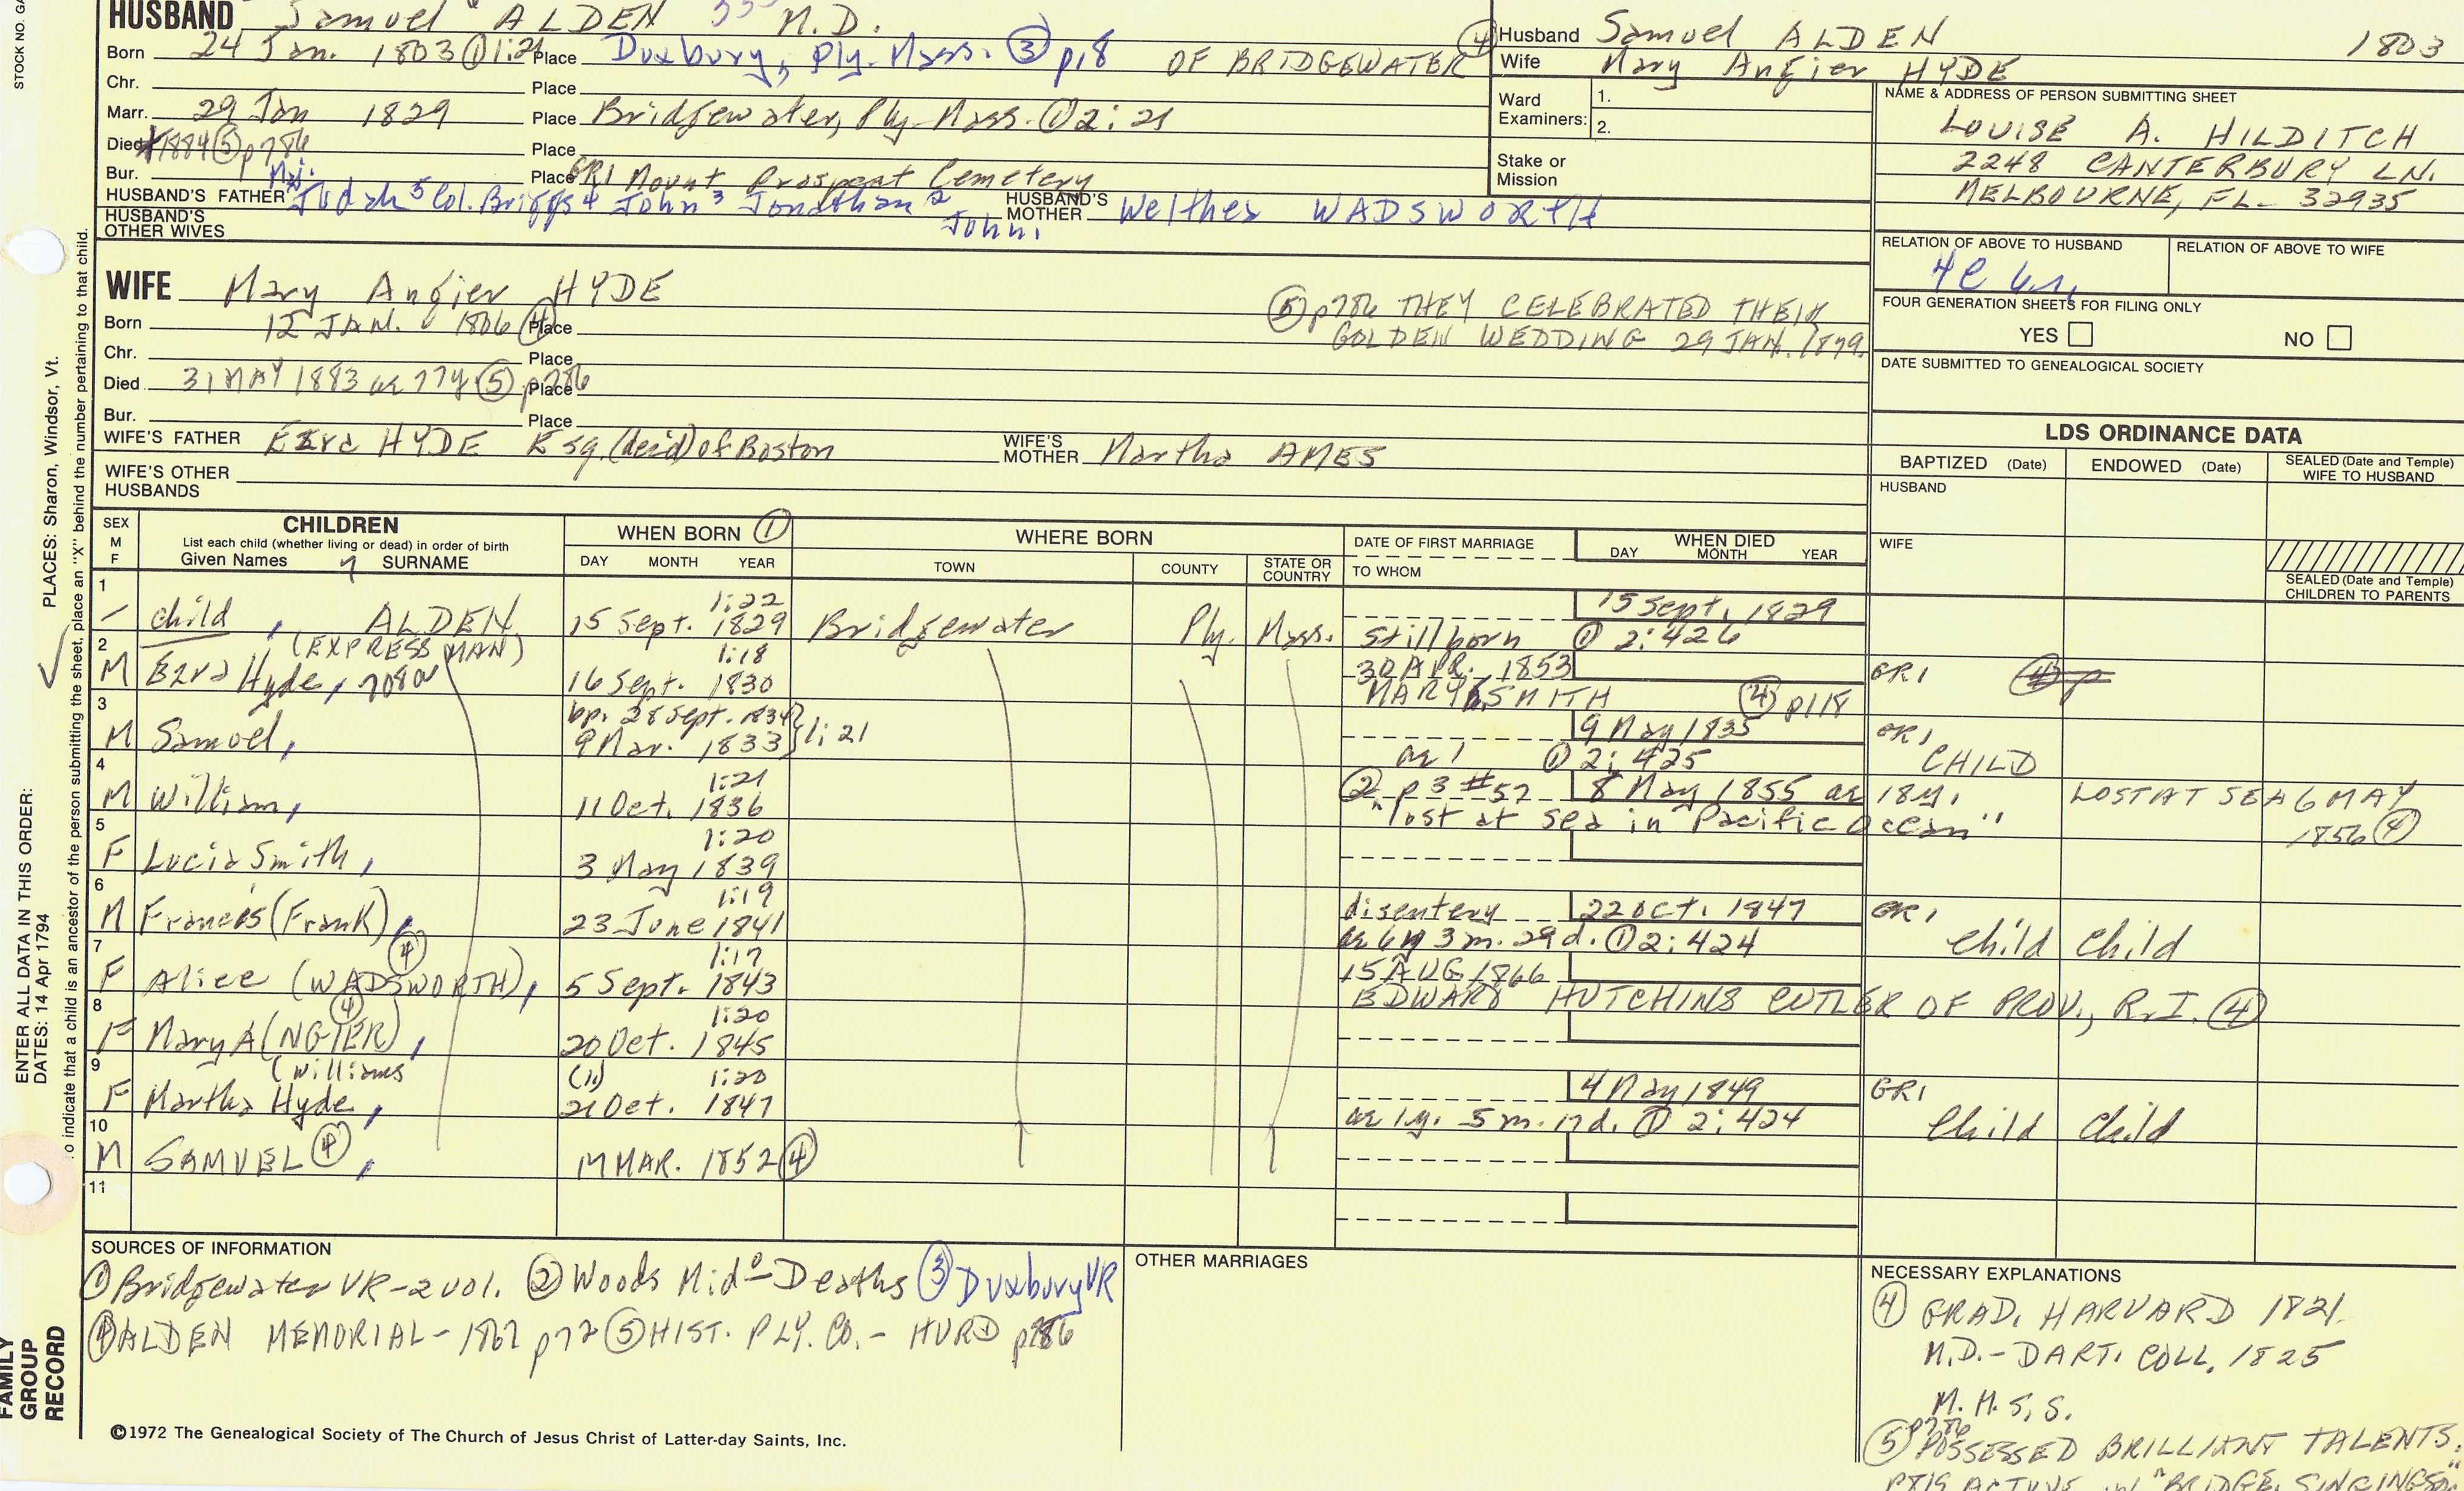 STOCK NO.
HUSBAND Samuel ALDEN M.D.
Born 24 Jan. 1803 ① 1:21 Place Duxbury, Ply. Mass. ③ p.18 OF BRIDGEWATER ④
Chr. Place
Marr. 29 Jan 1829 Place Bridgewater, Ply. Mass. ① 2:21
Died 1884 ⑤ p786 Place
Bur. Place GR1 Mount Prospect Cemetery
HUSBAND'S FATHER Maj. Judah 5 Col. Briggs 4 John 3 Jonathan 2 John 1
HUSBAND'S MOTHER Welthea WADSWORTH
HUSBAND'S OTHER WIVES
Husband Samuel ALDEN 1803
Wife Mary Angier HYDE
Ward Examiners: 1.
2.
Stake or Mission
NAME & ADDRESS OF PERSON SUBMITTING SHEET
LOUISE A. HILDITCH
2248 CANTERBURY LN.
MELBOURNE, FL- 32935
RELATION OF ABOVE TO HUSBAND RELATION OF ABOVE TO WIFE
FOUR GENERATION SHEETS FOR FILING ONLY
YES NO
DATE SUBMITTED TO GENEALOGICAL SOCIETY
WIFE Mary Angier HYDE
Born 12 JAN. 1806 ④ Place
Chr. Place
Died 31 MAY 1883 ae 77y ⑤ p786 Place
Bur. Place
⑤ p786 THEY CELEBRATED THEIR
GOLDEN WEDDING 29 JAN. 1879.
WIFE'S FATHER Ezra HYDE Esq. (dec'd) of Boston
WIFE'S MOTHER Martha AMES
WIFE'S OTHER HUSBANDS
LDS ORDINANCE DATA
BAPTIZED (Date) ENDOWED (Date) SEALED (Date and Temple) WIFE TO HUSBAND
HUSBAND
WIFE
SEALED (Date and Temple) CHILDREN TO PARENTS
SEX M F
CHILDREN
List each child (whether living or dead) in order of birth
Given Names SURNAME
WHEN BORN ①
DAY MONTH YEAR
WHERE BORN
TOWN COUNTY STATE OR COUNTRY
DATE OF FIRST MARRIAGE
TO WHOM
WHEN DIED
DAY MONTH YEAR
1 child, ALDEN 1:22 15 Sept. 1829 Bridgewater Ply. Mass. stillborn 15 Sept. 1829 ① 2:426
2 M Ezra Hyde, (EXPRESS MAN) 1:18 16 Sept. 1830 30 APR. 1853 MARY SMITH ④ p118 GR1
3 M Samuel, bp. 28 Sept. 1834 9 Mar. 1833 } 1:21 9 May 1835 ae 1 ① 2:425 GR1 CHILD
4 M William, 1:21 11 Oct. 1836 ② p3 #57 8 May 1855 ae 18y. "lost at sea in Pacific Ocean" LOST AT SEA 6 MAY 1856 ④
5 F Lucia Smith, 1:20 3 May 1839
6 M Francis (Frank), 1:19 23 June 1841 disentery 22 Oct. 1847 ae 6y 3m. 29d. ① 2:424 GR1 child child
7 F Alice (WADSWORTH) ④, 1:17 5 Sept. 1843 15 AUG 1866 EDWARD HUTCHINS CUTLER OF PROV., R.I. ④
8 F Mary A(NGIER) ④, 1:20 20 Oct. 1845
9 F Martha Hyde, (Williams 1:20 21 Oct. 1847 4 May 1849 ae 1y. 5m. 17d. ① 2:424 GR1 child child
10 M SAMUEL ④, MAR. 1852 ④
11
SOURCES OF INFORMATION
① Bridgewater VR - 2 vol. ② Woods Mid° - Deaths ③ Duxbury VR
④ ALDEN MEMORIAL - 1867 p72 ⑤ HIST. PLY. CO. - HURD p786
OTHER MARRIAGES
NECESSARY EXPLANATIONS
④ GRAD. HARVARD 1821.
M.D. - DART. COLL. 1825
M.M.S.S.
⑤ p786 POSSESSED BRILLIANT TALENTS.
p819 ACTIVE
©1972 The Genealogical Society of The Church of Jesus Christ of Latter-day Saints, Inc.
FAMILY GROUP RECORD
ENTER ALL DATA IN THIS ORDER:
DATES: 14 Apr 1794
PLACES: Sharon, Windsor, Vt.
To indicate that a child is an ancestor of the person submitting the sheet, place an "X" behind the number pertaining to that child.